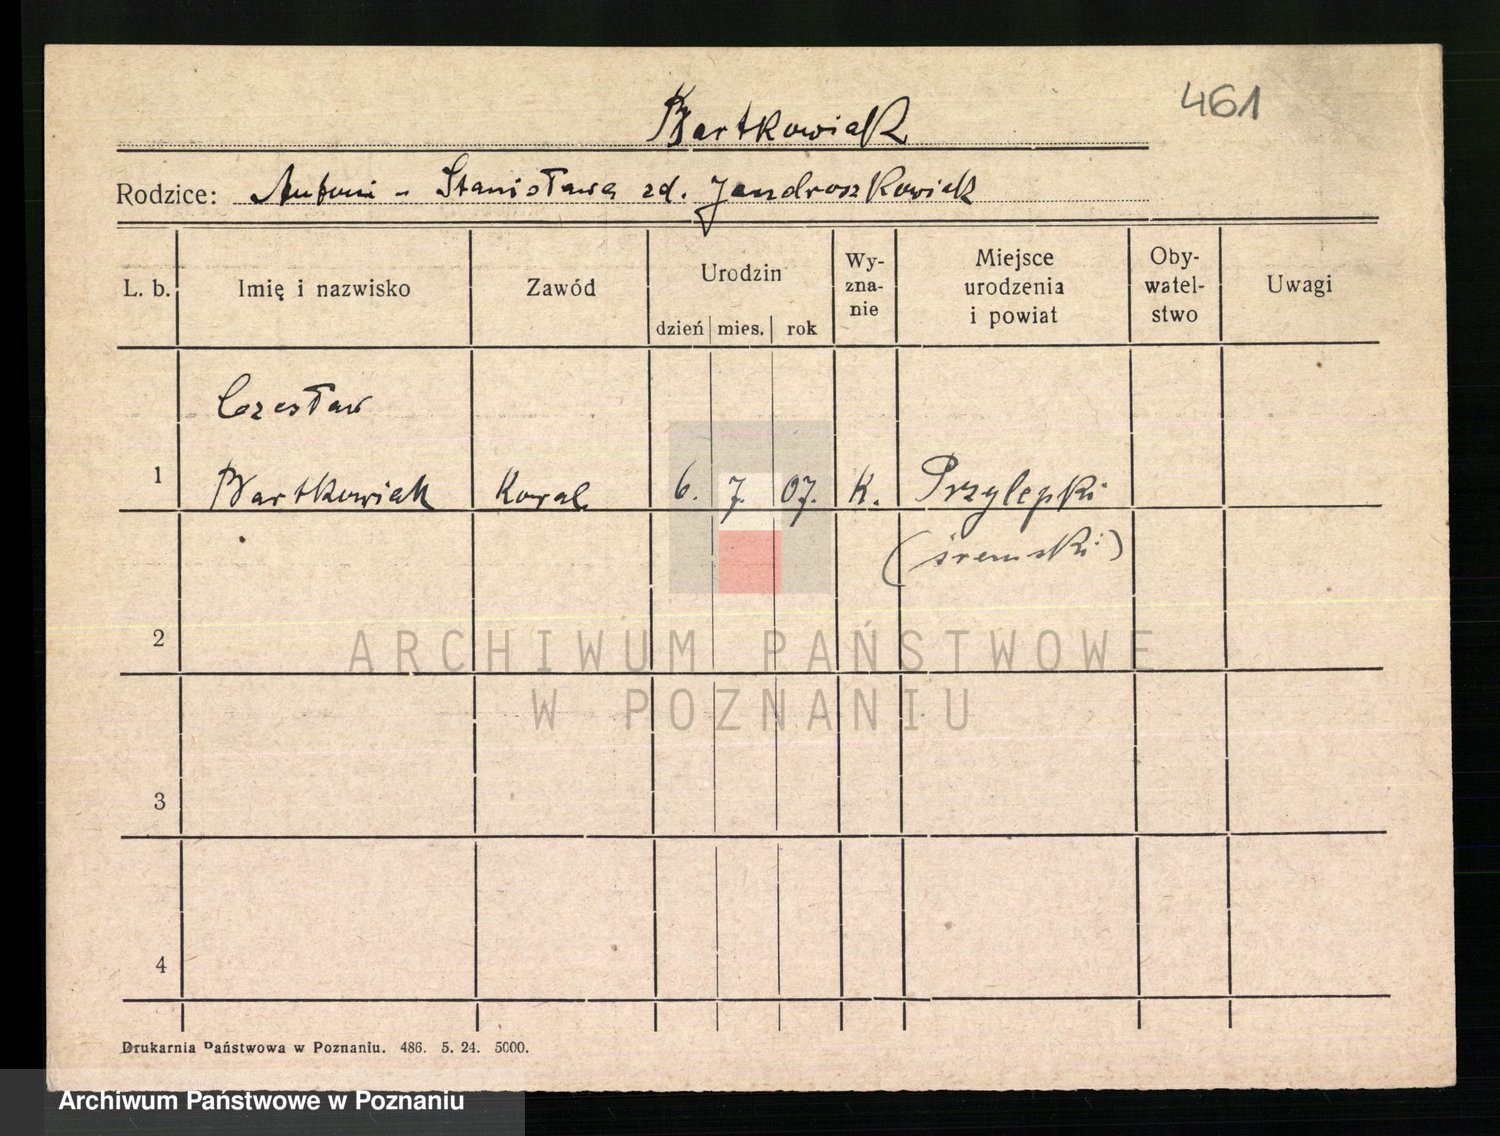 461
Bartkowiak
Rodzice: Antoni - Stanisława zd. Jandroszkowiak
L. b. Imię i nazwisko Zawód Urodzin dzień mies. rok Wy-zna-nie Miejsce urodzenia i powiat Oby-watel-stwo Uwagi
Czesław
1 Bartkowiak Kowal 6. 7. 07. K. Przylepki
(śremski)
2
ARCHIWUM PAŃSTWOWE
W POZNANIU
3
4
Drukarnia Państwowa w Poznaniu. 486. 5. 24. 5000.
Archiwum Państwowe w Poznaniu